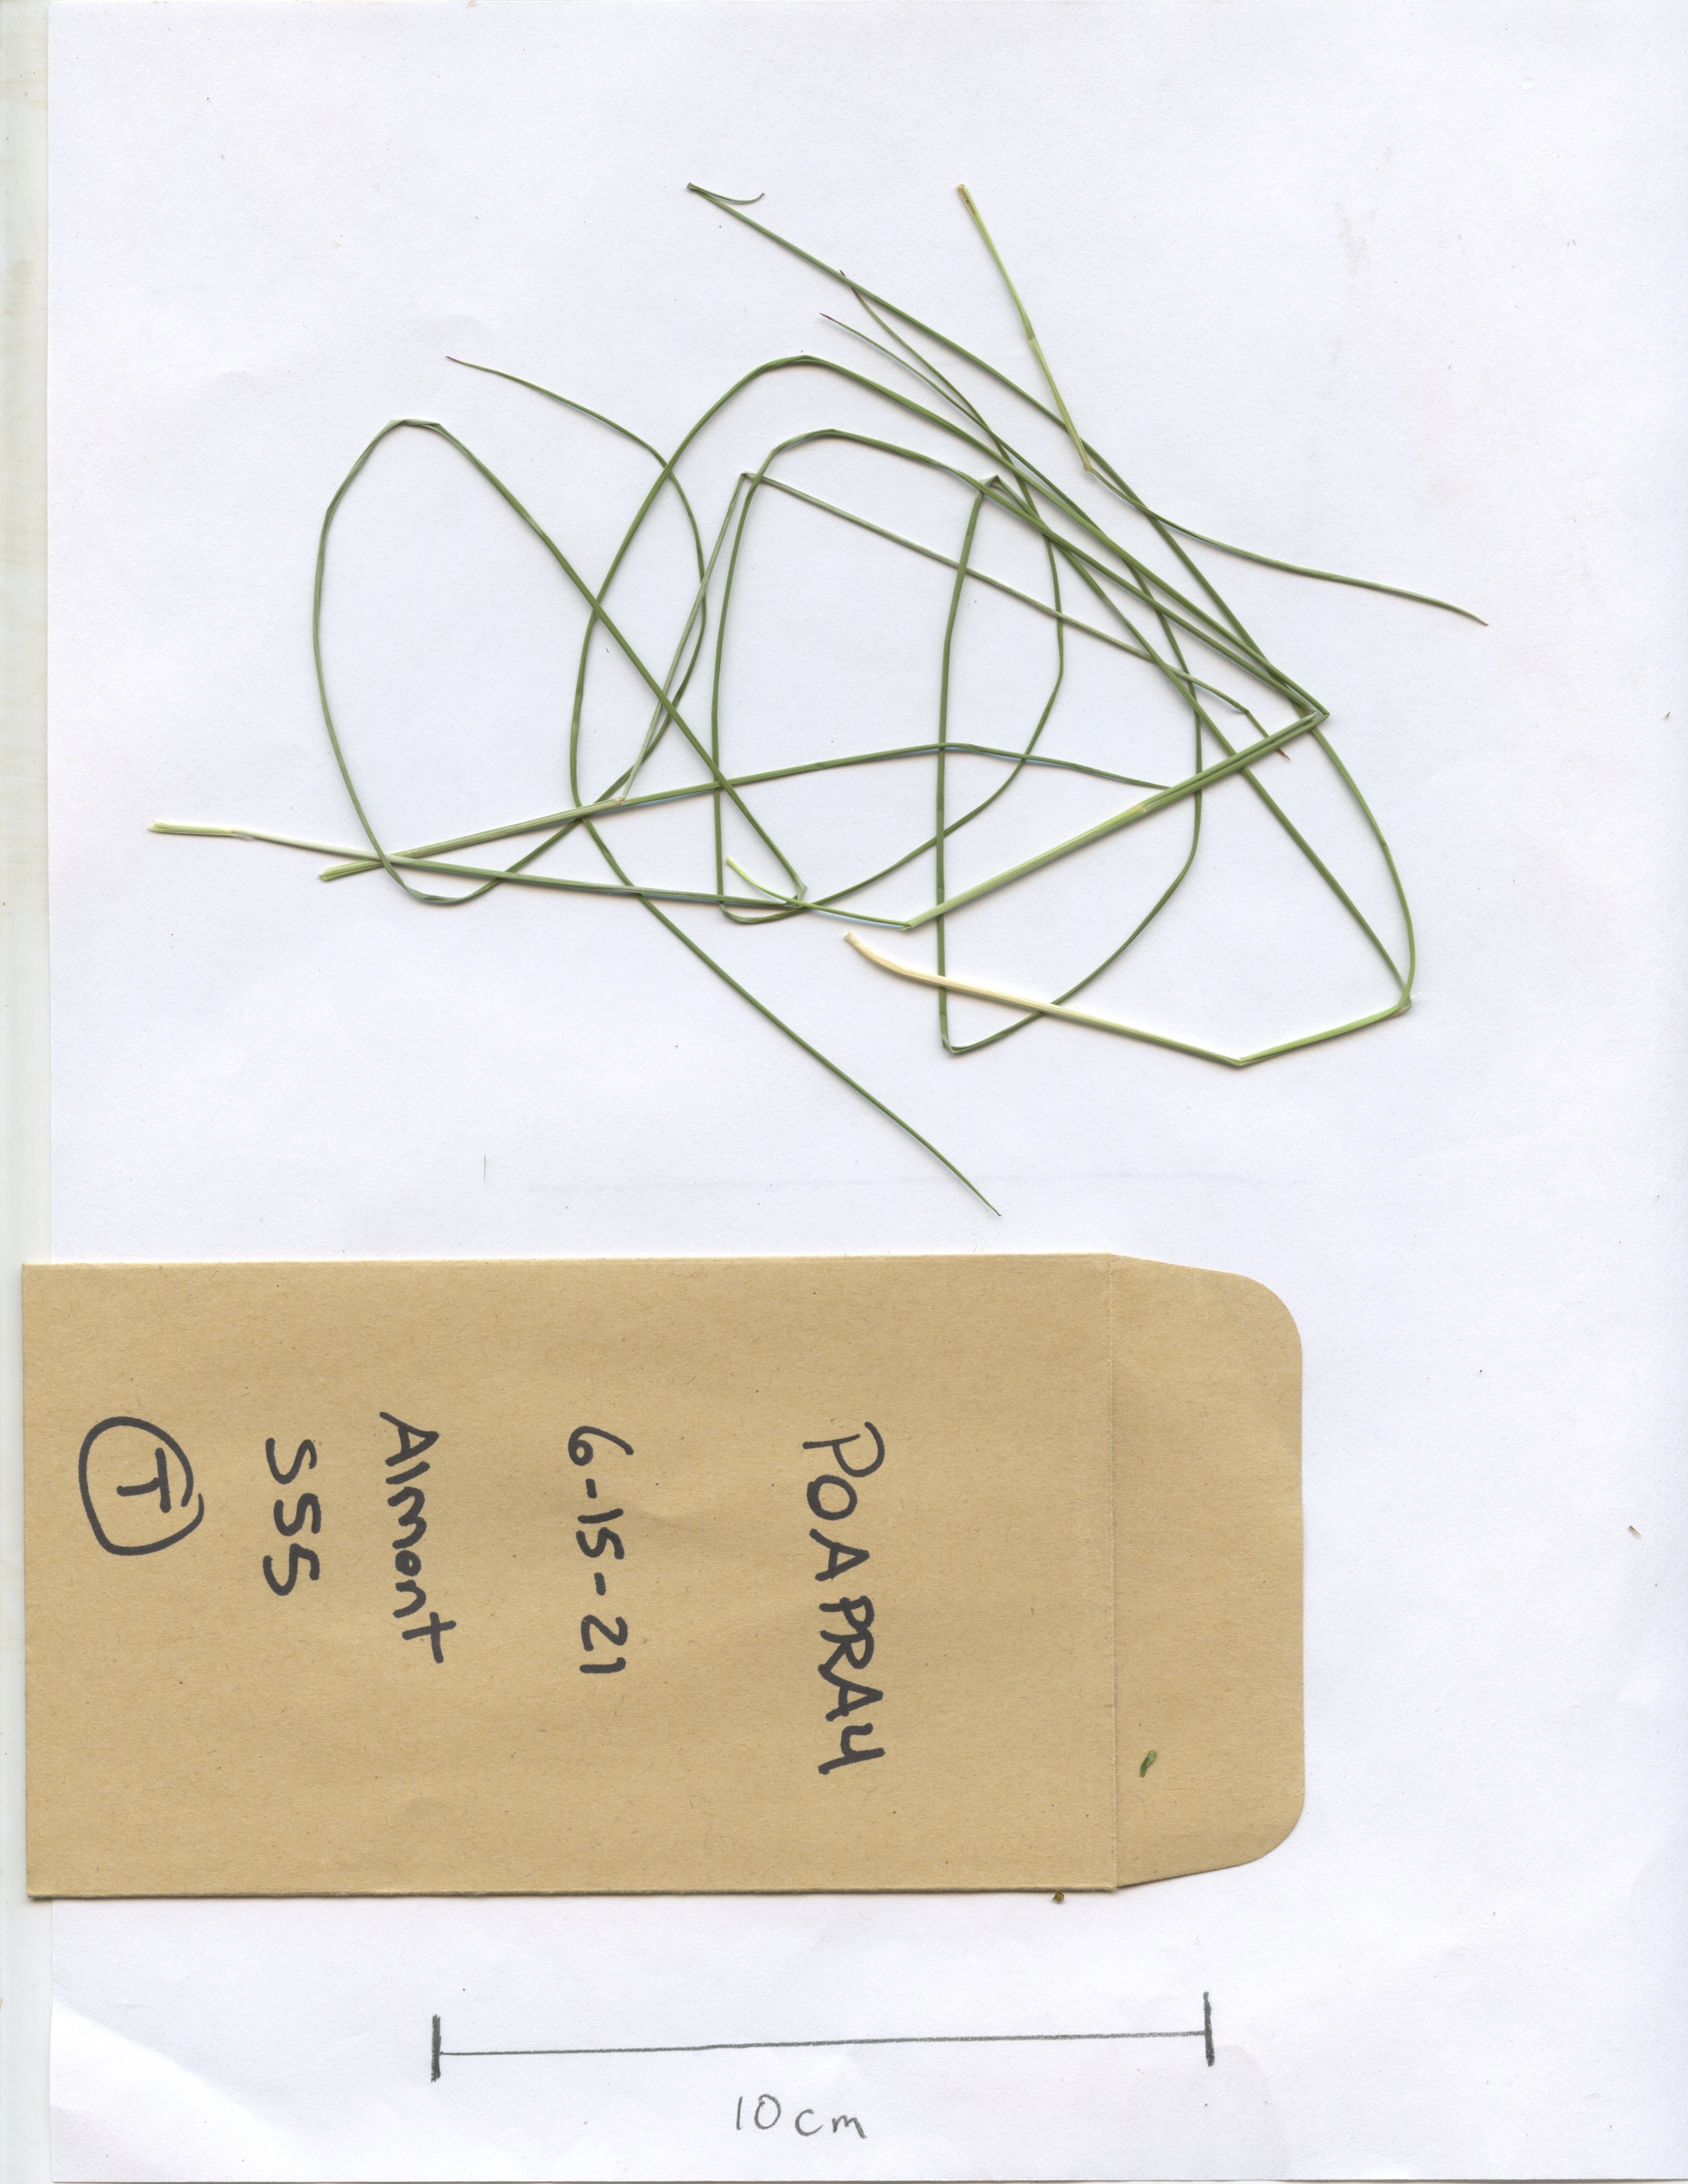 POAPRA4
6-15-21
Almont
S55
T
10cm